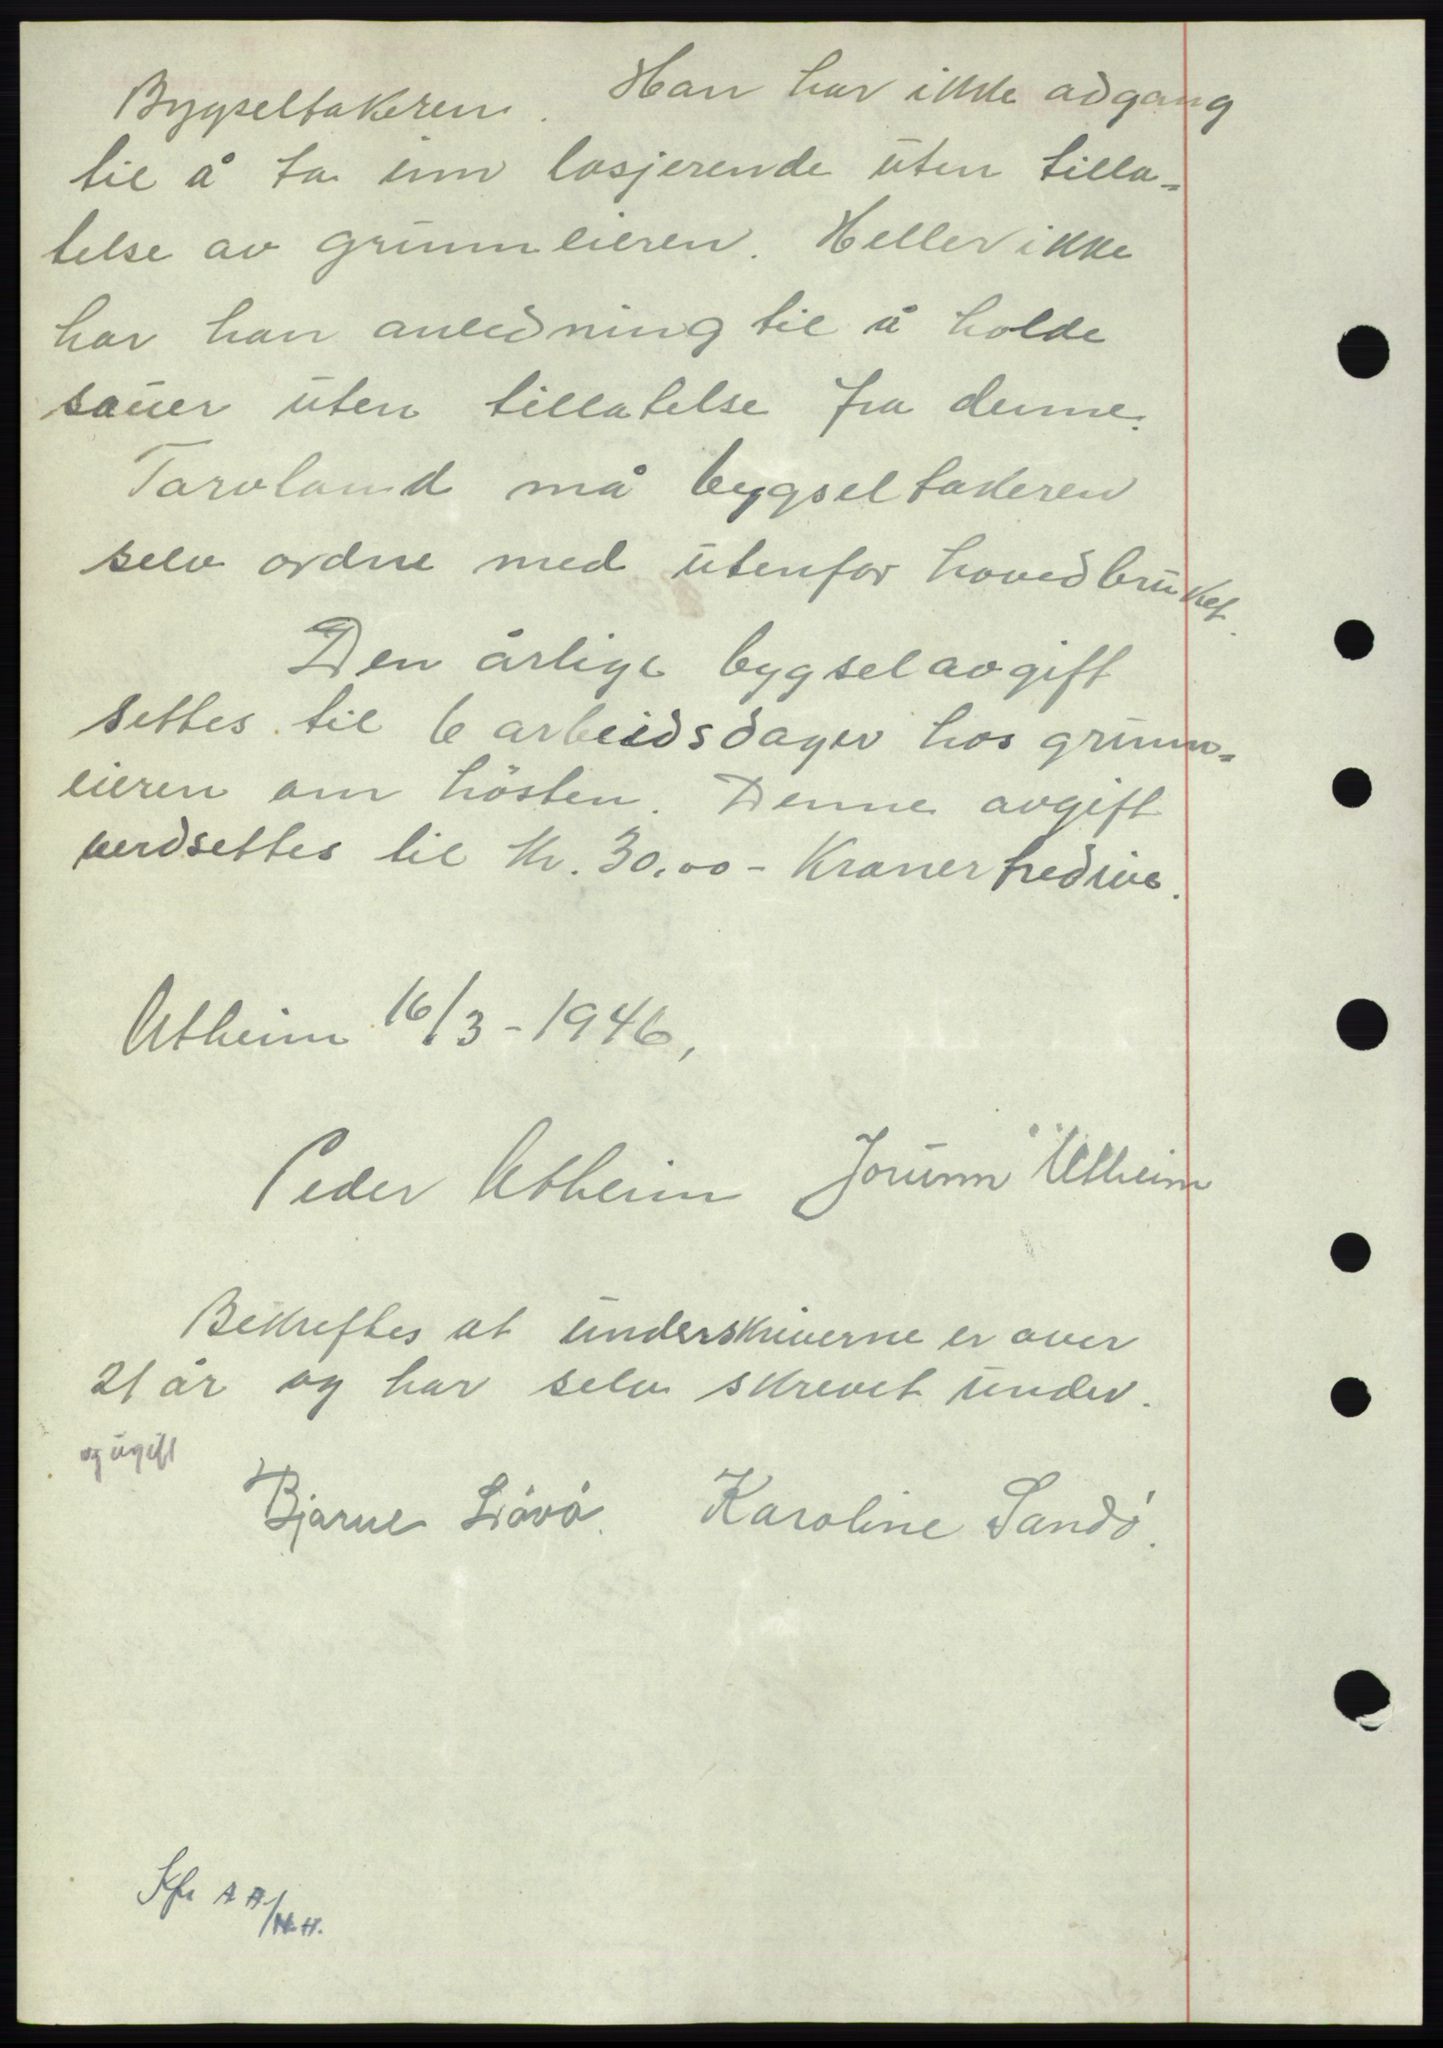 Bygseltakeren. Han har ikke adgang
til å ta inn losjerende uten tilla-
telse av grunneieren. Heller ikke
har han anledning til å holde
sauer uten tillatelse fra denne.
Tarvland må bygseltakeren
selv ordne med utenfor hovedbruket.
Den årlige bygselavgift
settes til 6 arbeidsdager hos grunn-
eieren om hösten. Denne avgift
verdsettes til kr. 30.00 - Kroner tredive.
Utheim 16/3-1946,
Peder Utheim Jorunn Utheim
Bekreftes at underskriverne er over
21 år og har selv skrevet under.
og ugift
Bjarne Lövö. Karoline Sandö.
Kfr AA/N.H.